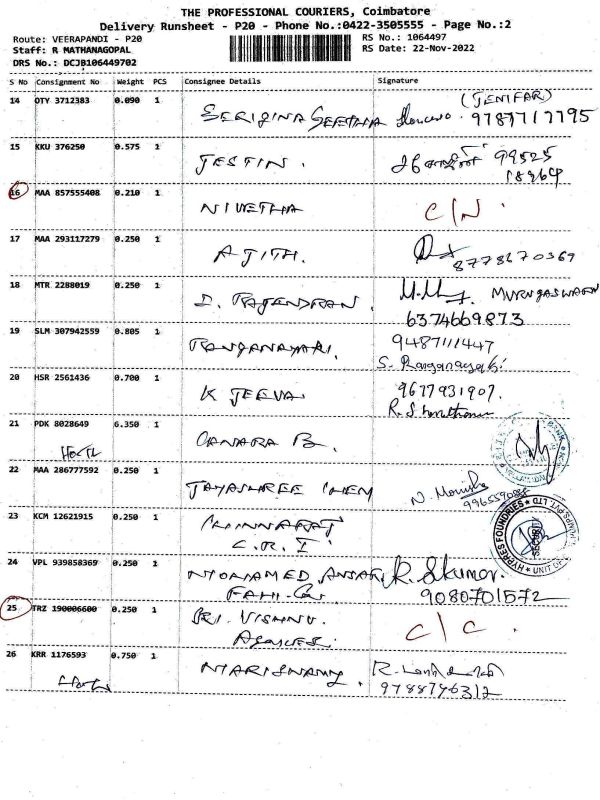 THE PROFESSIONAL COURIERS, Coimbatore
Delivery Runsheet - P20 - Phone No.:0422-3505555 - Page No.:2
Route: VEERAPANDI - P20
RS No.: 1064497
Staff: R MATHANAGOPAL
RS Date: 22-Nov-2022
DRS No.: DCJB106449702
S No Consignment No Weight PCS Consignee Details Signature
14 OTY 3712383 0.090 1 (JENIFAR)
9787717795
15 KKU 376250 0.575 1 JESTIN. 99525
18964
16 MAA 857555408 0.210 1 NIVETHA C/N
17 MAA 293117279 0.250 1 AJITH. 8778670369
18 MTR 2288019 0.250 1 D. RAJENDRAN
6374669873
19 SLM 307942559 0.805 1 9487111447
S. Ranganayaki
20 HSR 2561436 0.700 1 K JEEVA 9677931907.
21 PDK 8028649 6.350 1 CANARA B.
22 MAA 286777592 0.250 1 JAYASHREE CHEM
23 KCM 12621915 0.250 1
C.R.I.
HYPRES FOUNDRIES
SECURITY
24 VPL 939858369 0.250 1 MOHAMED ANSARI
9080701572
25 TRZ 190006600 0.250 1 SRI VISHNU C/C.
26 KRR 1176593 0.750 1 MARISWAMY
9788796312